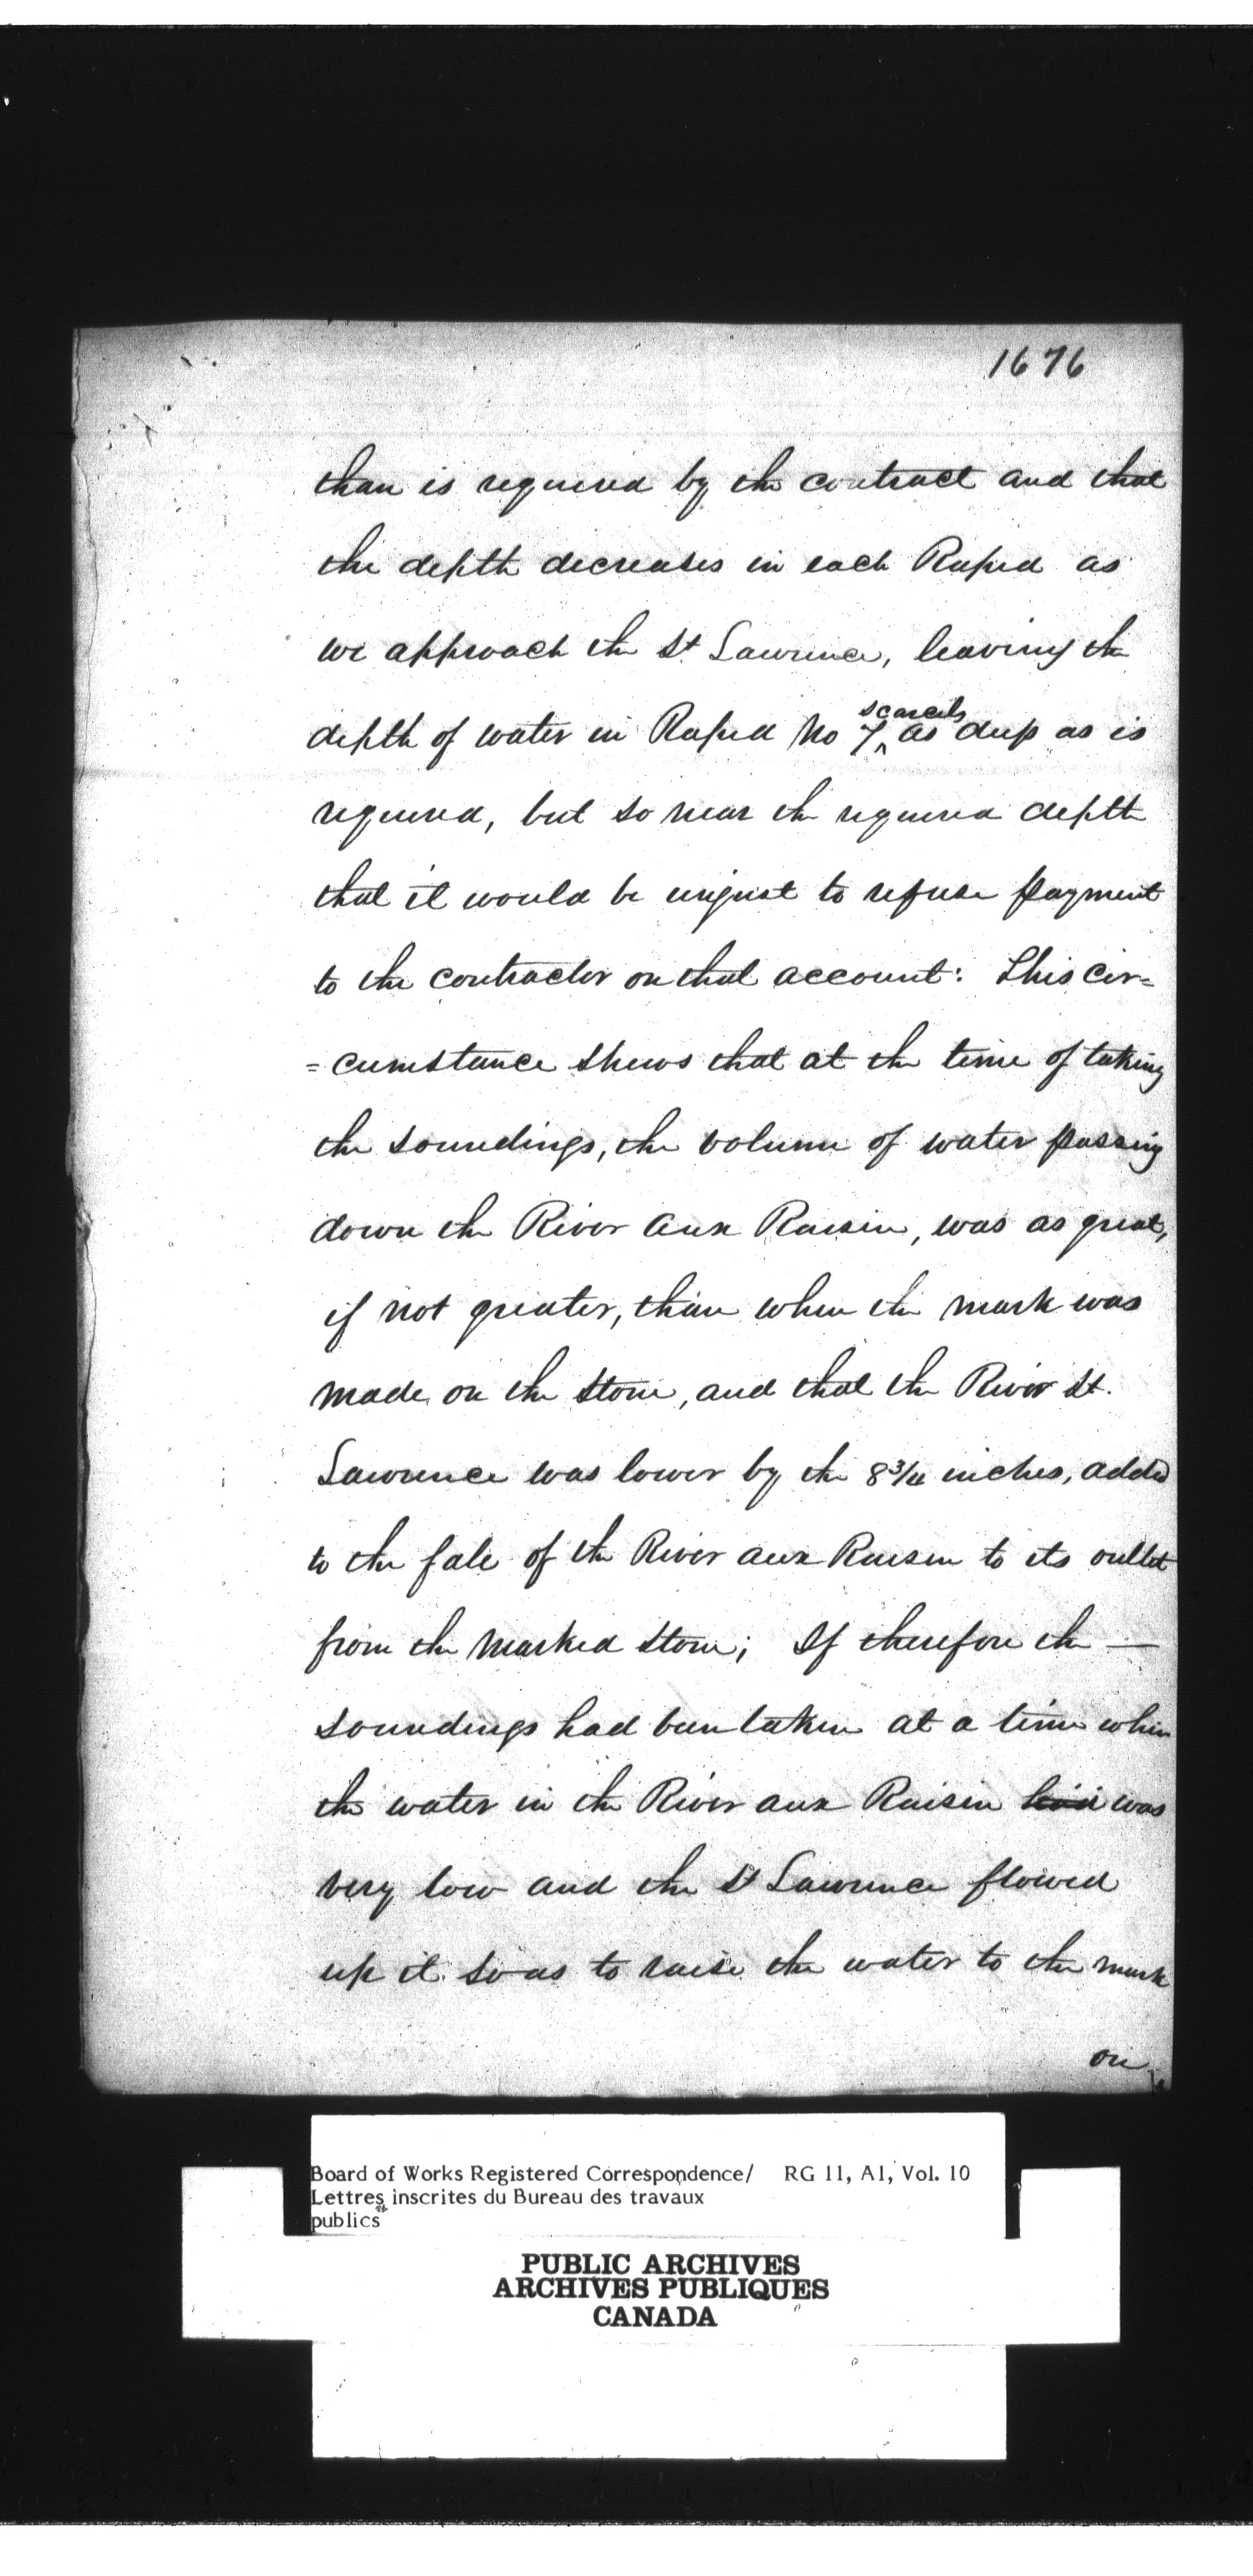 1676
than is required by the contract and that
the depth decreases in each Rapid as
we approach the St Lawrence, leaving the
depth of water in Rapid No 7 scarcely as deep as is
required, but so near the required depth
that it would be unjust to refuse payment
to the contractor on that account: This cir=
=cumstance shews that at the time of taking
the soundings, the volume of water passing
down the River aux Raisin, was as great,
if not greater, than when the mark was
made on the stone, and that the River St.
Lawrence was lower by the 8 3/4 inches, added
to the fall of the River aux Raisin to its outlet
from the marked stone; If therefore the —
soundings had been taken at a time when
the water in the River aux Raisin was
very low and the St Lawrence flowed
up it so as to raise the water to the mark
on
Board of Works Registered Correspondence/ RG 11, A1, Vol. 10
Lettres inscrites du Bureau des travaux
publics
PUBLIC ARCHIVES
ARCHIVES PUBLIQUES
CANADA